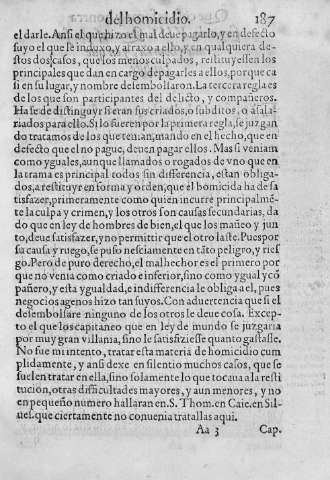 del homicidio. 187
el darle. Ansi el que hizo el mal deue pagarlo, y en defecto
suyo el que se induxo, y atraxo a ello, y en qualquiera de-
stos dos casos, que los menos culpados, restituyessen los
principales que dan en cargo de pagarles a ellos, porque ca
si en su lugar, y nombre desembollaron. La tercera regla es
de los que son participantes del delicto, y compañeros.
Ha se de distinguyr si eran sus criados, o subditos, o asala-
riados para ello. Si lo fueren por la primera regla, se juzgan
do tratamos de los que tenian, mando en el hecho, que en
defecto que el no pague, deuen pagar ellos. Mas si veniam
como yguales, aunque llamados o rogados de vno que en
la trama es principal todos sin differencia, estan obliga-
dos, a restituyr en forma y orden, que el homicida ha de sa
tisfazer, primeramente como quien incurre principalmẽ-
te la culpa y crimen, y los otros son causas secundarias, da
do que en ley de hombres de bien, el que los mañeo y jun
to, deue satisfazer, y no permittir que el otro laste. Pues por
su causa y ruego, se puso nesciamente en tãto peligro, y ries
go. Pero de puro derecho, el malhechor es el primero por
que no venia como criado e inferior, sino como ygual y cõ
pañero, y esta ygualdad, e indifferencia le obliga a el, pues
negocios agenos hizo tan suyos. Con aduertencia que si el
desembolsare ninguno de los otros le deue cosa. Excep-
to el que los capitaneo que en ley de mundo se juzgaria
por muy gran villania, sino le satisfiziesse quanto gastasse.
No fue mi intento, tratar esta materia de homicidio cum
plidamente, y ansi dexe en silentio muchos casos, que se
suelen tratar en ella, sino solamente lo que tocaua a la resti
tucion, otras difficultades mayores, y aun menores, y no
en pequeño numero hallaran en. S. Thom. en Caie. en Sil-
ues. que ciertamente no conuenia tratallas aqui.
Aa 3 Cap.